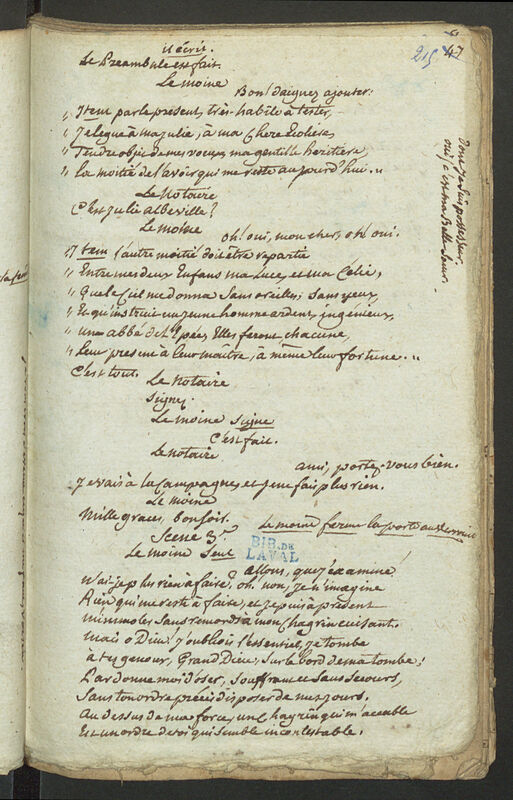 47
215
il écrit.
Le Preambule est fait.
Le moine
Bon! daignez ajouter:
„ Item par le présent, très-habile à tester,
„ Je legue à ma julie, à ma chere
„ Tendre objet de mes voeux, ma gentille heritiere
„ La moitié de l'avoir qui me reste aujourd'hui. „
Le Notaire
C'est julie albeville?
Le moine
oh! oui, mon cher, oh! oui.
Item l'autre moitié doit être repartie
„ Entre mes deux Enfans ma Luce, et ma Célie,
„ Que le Ciel me donna sans oreilles, sans yeux,
„ Et qu'instruit un jeune homme ardent, ingenieux,
„ un abbé de l'Epée, Elles feront chacune,
„ Leur present à leur maitre, à même leur fortune. „
C'est tout.
Le Notaire
Signez.
Le moine signe
C'est fait.
Le Notaire
ami, portez-vous bien.
Je vais à la campagne, et je ne fais plus rien.
Le moine
Mille graces, bonsoir.
Le moine ferme la porte aux verroux
Scene 3.
BIB. DE
LAVAL
Le moine seul
allons, que j'examine!
N'ai-je plus rien à faire? oh! non, je n'imagine
Rien qui me reste à faire, et je puis à présent
m'immoler sans remords à mon chagrin cuisant.
mais o Dieu! j'oubliois l'essentiel, je tombe
à tes genoux, Grand Dieu, sur le bord de ma tombe!
Pardonne moi d'oser, souffrant et sans secours,
Sans ton ordre précis disposer de mes jours.
Au dessus de ma force, un chagrin qui m'accable
Est un ordre de toi qui semble incontestable.
Donc je suis possesseur.
oui, c'est ma Belle-Soeur.